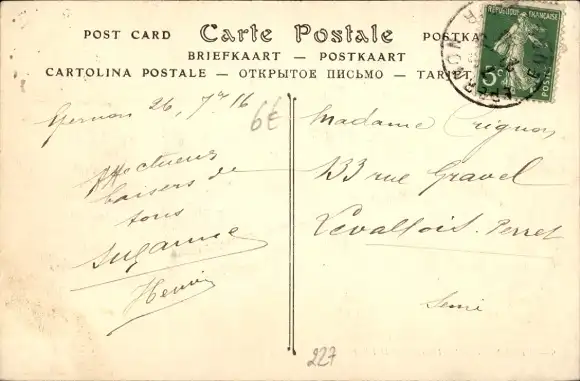 POST CARD Carte Postale POSTKA
BRIEFKAART - POSTKAART
CARTOLINA POSTALE - ОТКРЫТОЕ ПИСЬМО - TARJET
RÉPUBLIQUE FRANÇAISE
5c
POSTES
26, 7bre 16
6€
Affectueux
baisers de
tous
Suzanne
Henri
Madame
133 rue Gravel
Levallois-Perret
Seine
227